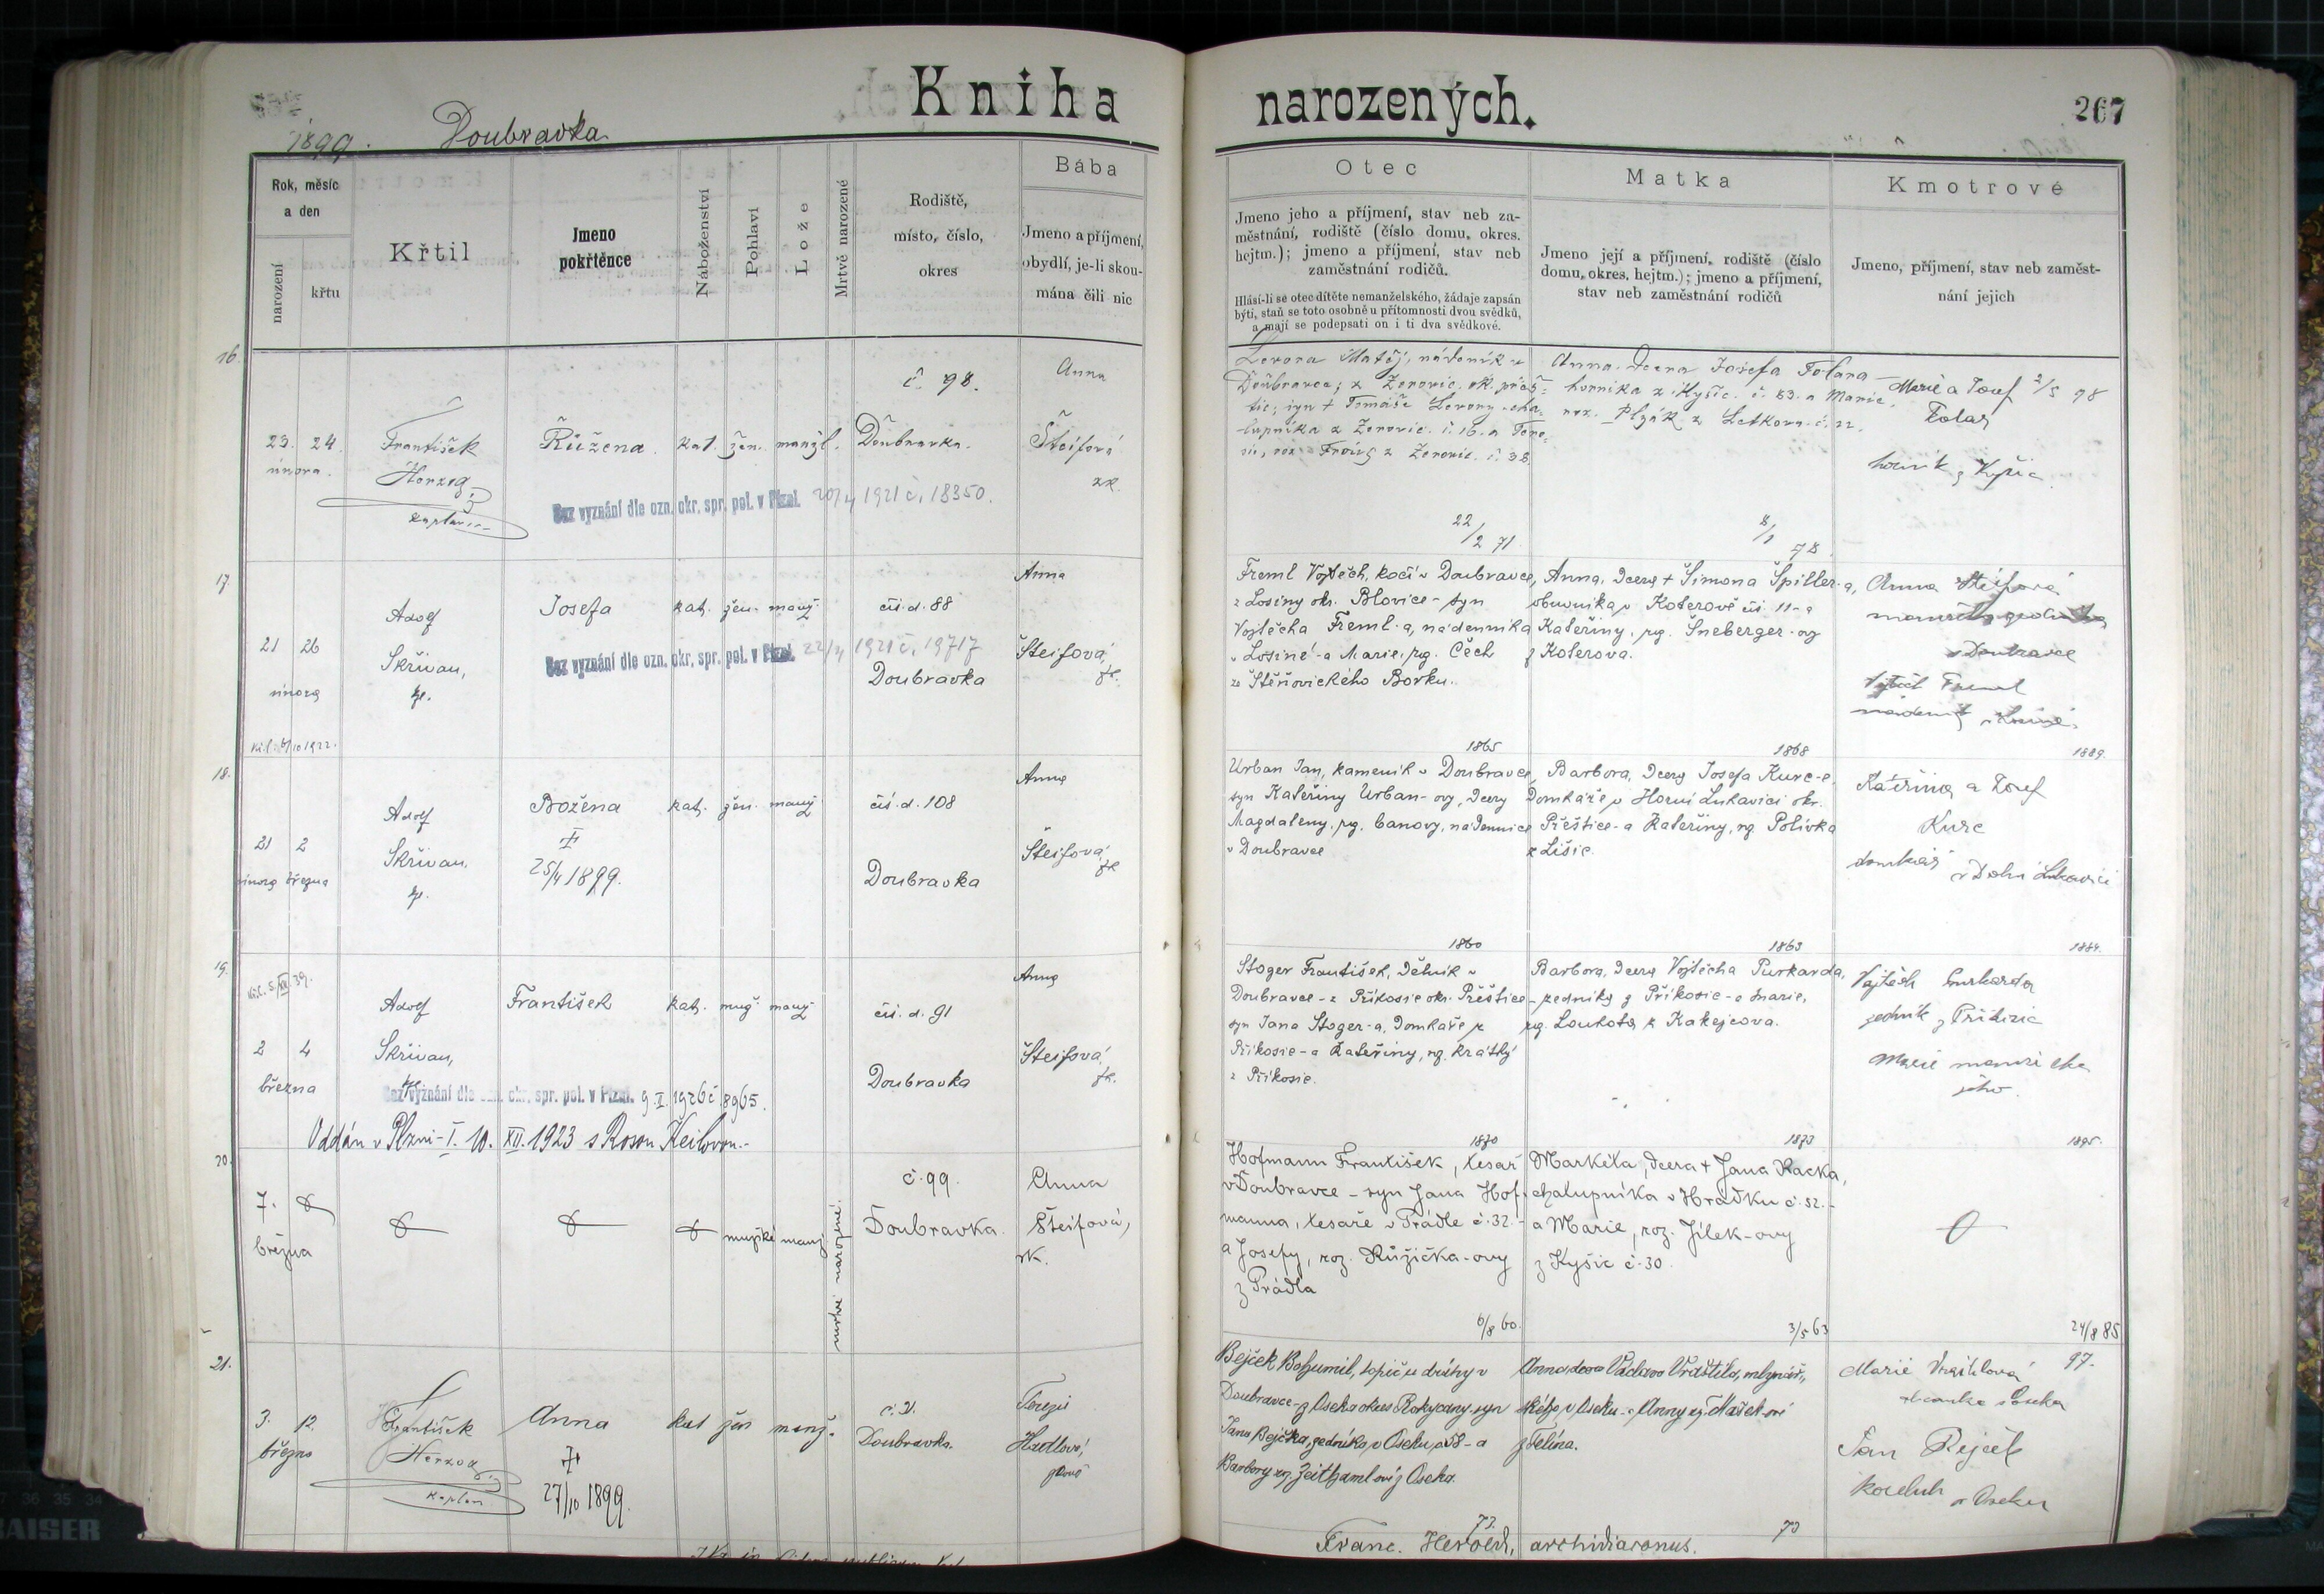 Kniha narozených.
267
1899. Doubravka
Rok, měsíc a den
narození
křtu
Křtil
Jmeno pokřtěnce
Náboženství
Pohlaví
Lože
Mrtvě narozené
Rodiště, místo, číslo, okres
Bába
Jmeno a příjmení, obydlí, je-li skoumána čili nic
Otec
Jmeno jeho a příjmení, stav neb za-
městnání, rodiště (číslo domu, okres.
hejtm.); jmeno a příjmení, stav neb
zaměstnání rodičů.
Hlásí-li se otec dítěte nemanželského, žádaje zapsán
býti, staň se toto osobně u přítomnosti dvou svědků,
a mají se podepsati on i ti dva svědkové.
Matka
Jmeno její a příjmení, rodiště (číslo
domu, okres, hejtm.); jmeno a příjmení,
stav neb zaměstnání rodičů
Kmotrové
Jmeno, příjmení, stav neb zaměst-
nání jejich
16.
23. 24.
února.
František
Herzog
kaplan
Růžena
kat. žen. manžl.
č. 98.
Doubravka.
Anna
Šteifová
zk.
Bez vyznání dle ozn. okr. spr. pol. v Plzni. 20/4 1921 č. 18350.
Levora Matěj, nádeník v
Doubravce; z Žerovic. ok. přeš-
tic; syn + Tomáše Levory cha-
lupníka z Žerovic. č. 16. a Tere-
sie, roz. z Žerovic. č. 38.
22/2 71.
Anna. Dcera Josefa Tolara
horníka z Kyšic. č. 83. a Marie.
roz. Plzák z Letkova. č. 22.
78
Marie a Josef 2/5 98
Tolar
horník z Kyšic
17.
21 26
února
Adolf
Skřivan,
kp.
Josefa
kat. žen. manž.
čís. d. 88
Doubravka
Anna
Šteifová,
zk.
Bez vyznání dle ozn. okr. spr. pol. v Plzni. 22/4 1921 č. 19717
10 1922.
Freml Vojtěch, kočí v Doubravce,
z Losiny okr. Blovice - syn
Vojtěcha Freml-a, nádenníka
v Losiné - a Marie, rz. Čech
ze Štěňovického Borku.
1865
Anna, Dcera + Šimona Špiller-a,
obuvníka v Koterově čís. 11 - a
Kateřiny, rz. Šneberger-ovy
z Koterova.
1868
Anna Šteifová
v Doubravce
Vojtěch Freml
nádeník v Losiné.
1889.
18.
21 2
února března
Adolf
Skřivan,
kp.
Božena
25/4 1899.
kat. žen. manž.
čís. d. 108
Doubravka
Anna
Šteifová,
zk
Urban Jan, kameník v Doubravce,
syn Kateřiny Urban-ovy, Dcery
Magdaleny, rz. Canovy, nádennice
v Doubravce
1860
Barbora, Dcera Josefa Kurc-e,
Domkáře v Horní Lukavici okr.
Přeštice - a Kateřiny, rz. Polívka
z Lišic.
1863
Kateřina a Josef
Kurc
domkář v Dolní Lukavici
1884.
19.
2 4
března
Adolf
Skřivan,
František
kat. muž. manž.
čís. d. 91
Doubravka
Anna
Šteifová,
zk.
Bez vyznání dle ozn. okr. spr. pol. v Plzni. 9. I. 1926 č 8965.
Oddán v Plzni - I. 10. XII. 1923 s Rosou Keilovou.-
Stoger František, Dělník v
Doubravce - z Příkosic okr. Přeštice -
syn Jana Stoger-a, Domkaře z
Příkosic - a Kateřiny, rz. Krátký
z Příkosic.
1870
Barbora, Dcera Vojtěcha Purkarda,
zedníka z Příkosic - a Marie,
rz. Loukota z Kakejcova.
1873
Vojtěch Purkarda
zedník z Příkosic
Marie manželka
jeho.
1895.
20.
7.
března
mužské manž.
mrtvě narozené.
č. 99.
Doubravka.
Anna
Šteifová,
zk.
Hofmann František, tesař
v Doubravce - syn Jana Hof-
manna, tesaře v Prádle č. 32. -
a Josefy, roz. Růžička-ovy
z Prádla
6/8 60.
Markéta, dcera + Jana Racka,
chalupníka v Hrádku č. 52. -
a Marie, roz. Jílek-ovy
z Kyšic č. 30.
3/5 63
24/8 85
21.
3. 12.
března
František
Herzog
kaplan
Anna
27/10 1899.
kat žen manž.
Doubravka.
Terezie
Hudlová,
Bejček Bohumil, topič u dráhy v
Doubravce - z Oseka okres Rokycany - syn
Jana Bejčka, zedníka v Oseku - a
Barbory rz. Zeithamlové z Oseka.
73.
Anna, dcera Václava Vraštila, mlynář-
ského v Oseku - a Anny rz. Mašek-ové
z Telína.
73
Marie Vraštilová 97.
Jan Bejček
koželuh v Oseku
Franc. Herold, archidiaconus.